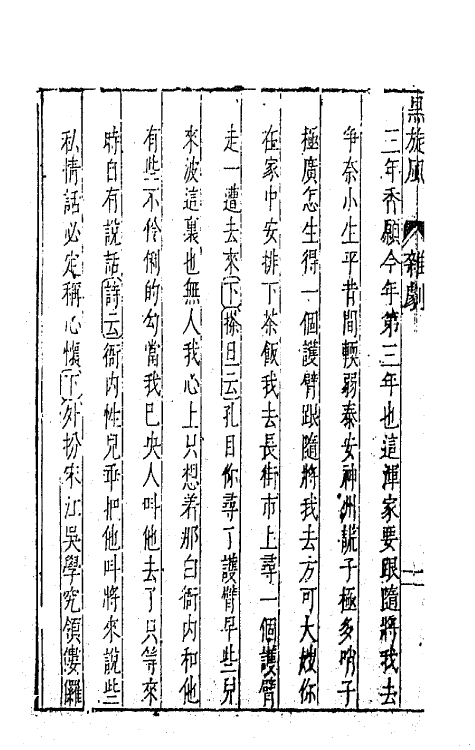 黑旋風 雜劇 二
三年香願今年第三年也這渾家要跟隨將我去
爭奈小生平昔間輭弱泰安神州謊子極多哨子
極廣怎生得一個護臂跟隨將我去方可大嫂你
在家中安排下茶飯我去長街市上尋一個護臂
走一遭去來下搽旦云孔目你尋了護臂早些兒
來波這裏也無人我心上只想着那白衙内和他
有些不伶俐的勾當我已央人叫他去了只等來
時自有說話詩云衙内性兒乖把他叫將來說些
私情話必定稱心懷下外扮宋江吳學究領僂儸